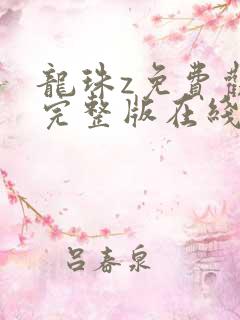 龍珠z免費
完整版在綫
呂春泉